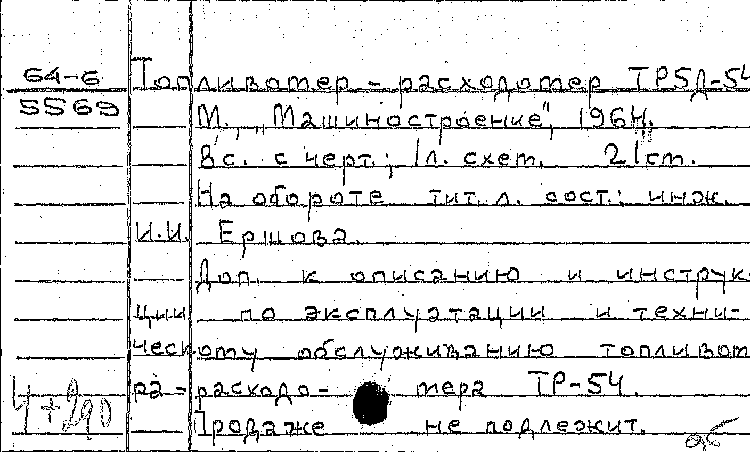 64-6
5569
Топливомер - расходомер ТР5Д-54
М., „Машиностроение", 1964.
8 с. с черт.; 1 л. схем. 21 см.
На обороте тит. л. сост.: инж.
И.И. Ершова.
Доп. к описанию и инструк-
ции по эксплуатации и техни-
ческому обслуживанию топливом
ра - расходо- мера ТР-54.
Продаже не подлежит.
4+290